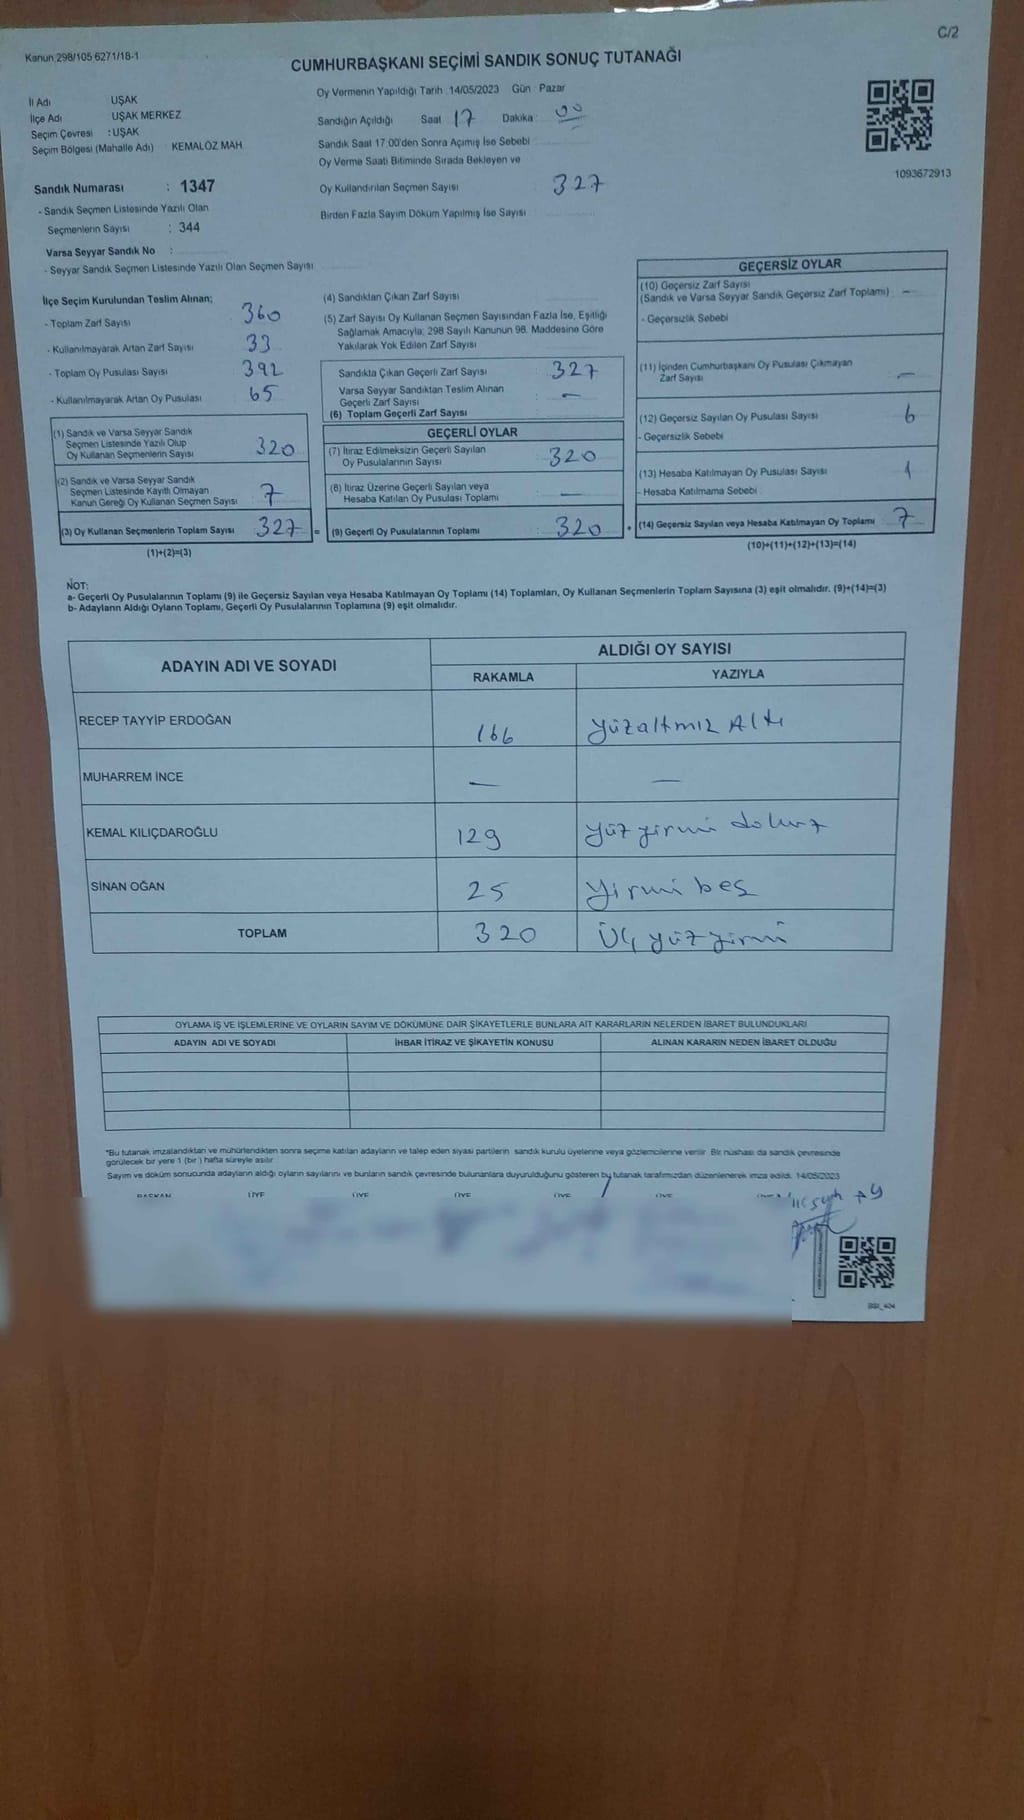 C/2
Kanun 298/105 6271/18-1
CUMHURBAŞKANI SEÇİMİ SANDIK SONUÇ TUTANAĞI
İl Adı UŞAK
İlçe Adı UŞAK MERKEZ
Seçim Çevresi : UŞAK
Seçim Bölgesi (Mahalle Adı) KEMALÖZ MAH
Oy Vermenin Yapıldığı Tarih 14/05/2023 Gün : Pazar
Sandığın Açıldığı Saat 17 Dakika 00
Sandık Saat 17:00'den Sonra Açımış İse Sebebi
Oy Verme Saati Bitiminde Sırada Bekleyen ve
Oy Kullandırılan Seçmen Sayısı 327
Birden Fazla Sayım Döküm Yapılmış İse Sayısı
1093672913
Sandık Numarası : 1347
- Sandık Seçmen Listesinde Yazılı Olan
Seçmenlerin Sayısı : 344
Varsa Seyyar Sandık No :
- Seyyar Sandık Seçmen Listesinde Yazılı Olan Seçmen Sayısı
İlçe Seçim Kurulundan Teslim Alınan;
- Toplam Zarf Sayısı 360
- Kullanılmayarak Artan Zarf Sayısı 33
- Toplam Oy Pusulası Sayısı 392
- Kullanılmayarak Artan Oy Pusulası 65
(1) Sandık ve Varsa Seyyar Sandık
Seçmen Listesinde Yazılı Olup
Oy Kullanan Seçmenlerin Sayısı 320
(2) Sandık ve Varsa Seyyar Sandık
Seçmen Listesinde Kayıtlı Olmayan
Kanun Gereği Oy Kullanan Seçmen Sayısı 7
(3) Oy Kullanan Seçmenlerin Toplam Sayısı 327 =
(1)+(2)=(3)
(4) Sandıktan Çıkan Zarf Sayısı
(5) Zarf Sayısı Oy Kullanan Seçmen Sayısından Fazla İse, Eşitliği
Sağlamak Amacıyla; 298 Sayılı Kanunun 98. Maddesine Göre
Yakılarak Yok Edilen Zarf Sayısı
Sandıkta Çıkan Geçerli Zarf Sayısı 327
Varsa Seyyar Sandıktan Teslim Alınan
Geçerli Zarf Sayısı —
(6) Toplam Geçerli Zarf Sayısı
GEÇERLİ OYLAR
(7) İtiraz Edilmeksizin Geçerli Sayılan
Oy Pusulalarının Sayısı 320
(8) İtiraz Üzerine Geçerli Sayılan veya
Hesaba Katılan Oy Pusulası Toplamı —
(9) Geçerli Oy Pusulalarının Toplamı : 320 +
GEÇERSİZ OYLAR
(10) Geçersiz Zarf Sayısı
(Sandık ve Varsa Seyyar Sandık Geçersiz Zarf Toplamı) —
- Geçersizlik Sebebi
(11) İçinden Cumhurbaşkanı Oy Pusulası Çıkmayan
Zarf Sayısı —
(12) Geçersiz Sayılan Oy Pusulası Sayısı 6
- Geçersizlik Sebebi
(13) Hesaba Katılmayan Oy Pusulası Sayısı 1
- Hesaba Katılmama Sebebi
(14) Geçersiz Sayılan veya Hesaba Katılmayan Oy Toplamı 7
(10)+(11)+(12)+(13)=(14)
NOT:
a- Geçerli Oy Pusulalarının Toplamı (9) ile Geçersiz Sayılan veya Hesaba Katılmayan Oy Toplamı (14) Toplamları, Oy Kullanan Seçmenlerin Toplam Sayısına (3) eşit olmalıdır. (9)+(14)=(3)
b- Adayların Aldığı Oyların Toplamı, Geçerli Oy Pusulalarının Toplamına (9) eşit olmalıdır.
ADAYIN ADI VE SOYADI
ALDIĞI OY SAYISI
RAKAMLA YAZIYLA
RECEP TAYYİP ERDOĞAN 166 yüzaltmız Altı
MUHARREM İNCE — —
KEMAL KILIÇDAROĞLU 129 yüz yirmi dokuz
SİNAN OĞAN 25 Yirmi beş
TOPLAM 320 Üç yüz yirmi
OYLAMA İŞ VE İŞLEMLERİNE VE OYLARIN SAYIM VE DÖKÜMÜNE DAİR ŞİKAYETLERLE BUNLARA AİT KARARLARIN NELERDEN İBARET BULUNDUKLARI
ADAYIN ADI VE SOYADI İHBAR İTİRAZ VE ŞİKAYETİN KONUSU ALINAN KARARIN NEDEN İBARET OLDUĞU
*Bu tutanak imzalandıktan ve mühürlendikten sonra seçime katılan adayların ve talep eden siyasi partilerin sandık kurulu üyelerine veya gözlemcilerine verilir. Bir nüshası da sandık çevresinde
görülecek bir yere 1 (bir ) hafta süreyle asılır
Sayım ve döküm sonucunda adayların aldığı oyların sayılarını ve bunların sandık çevresinde bulunanlara duyurulduğunu gösteren bu tutanak tarafımızdan düzenlenerek imza edildi. 14/05/2023
BAŞKAN ÜYE ÜYE ÜYE ÜYE ÜYE